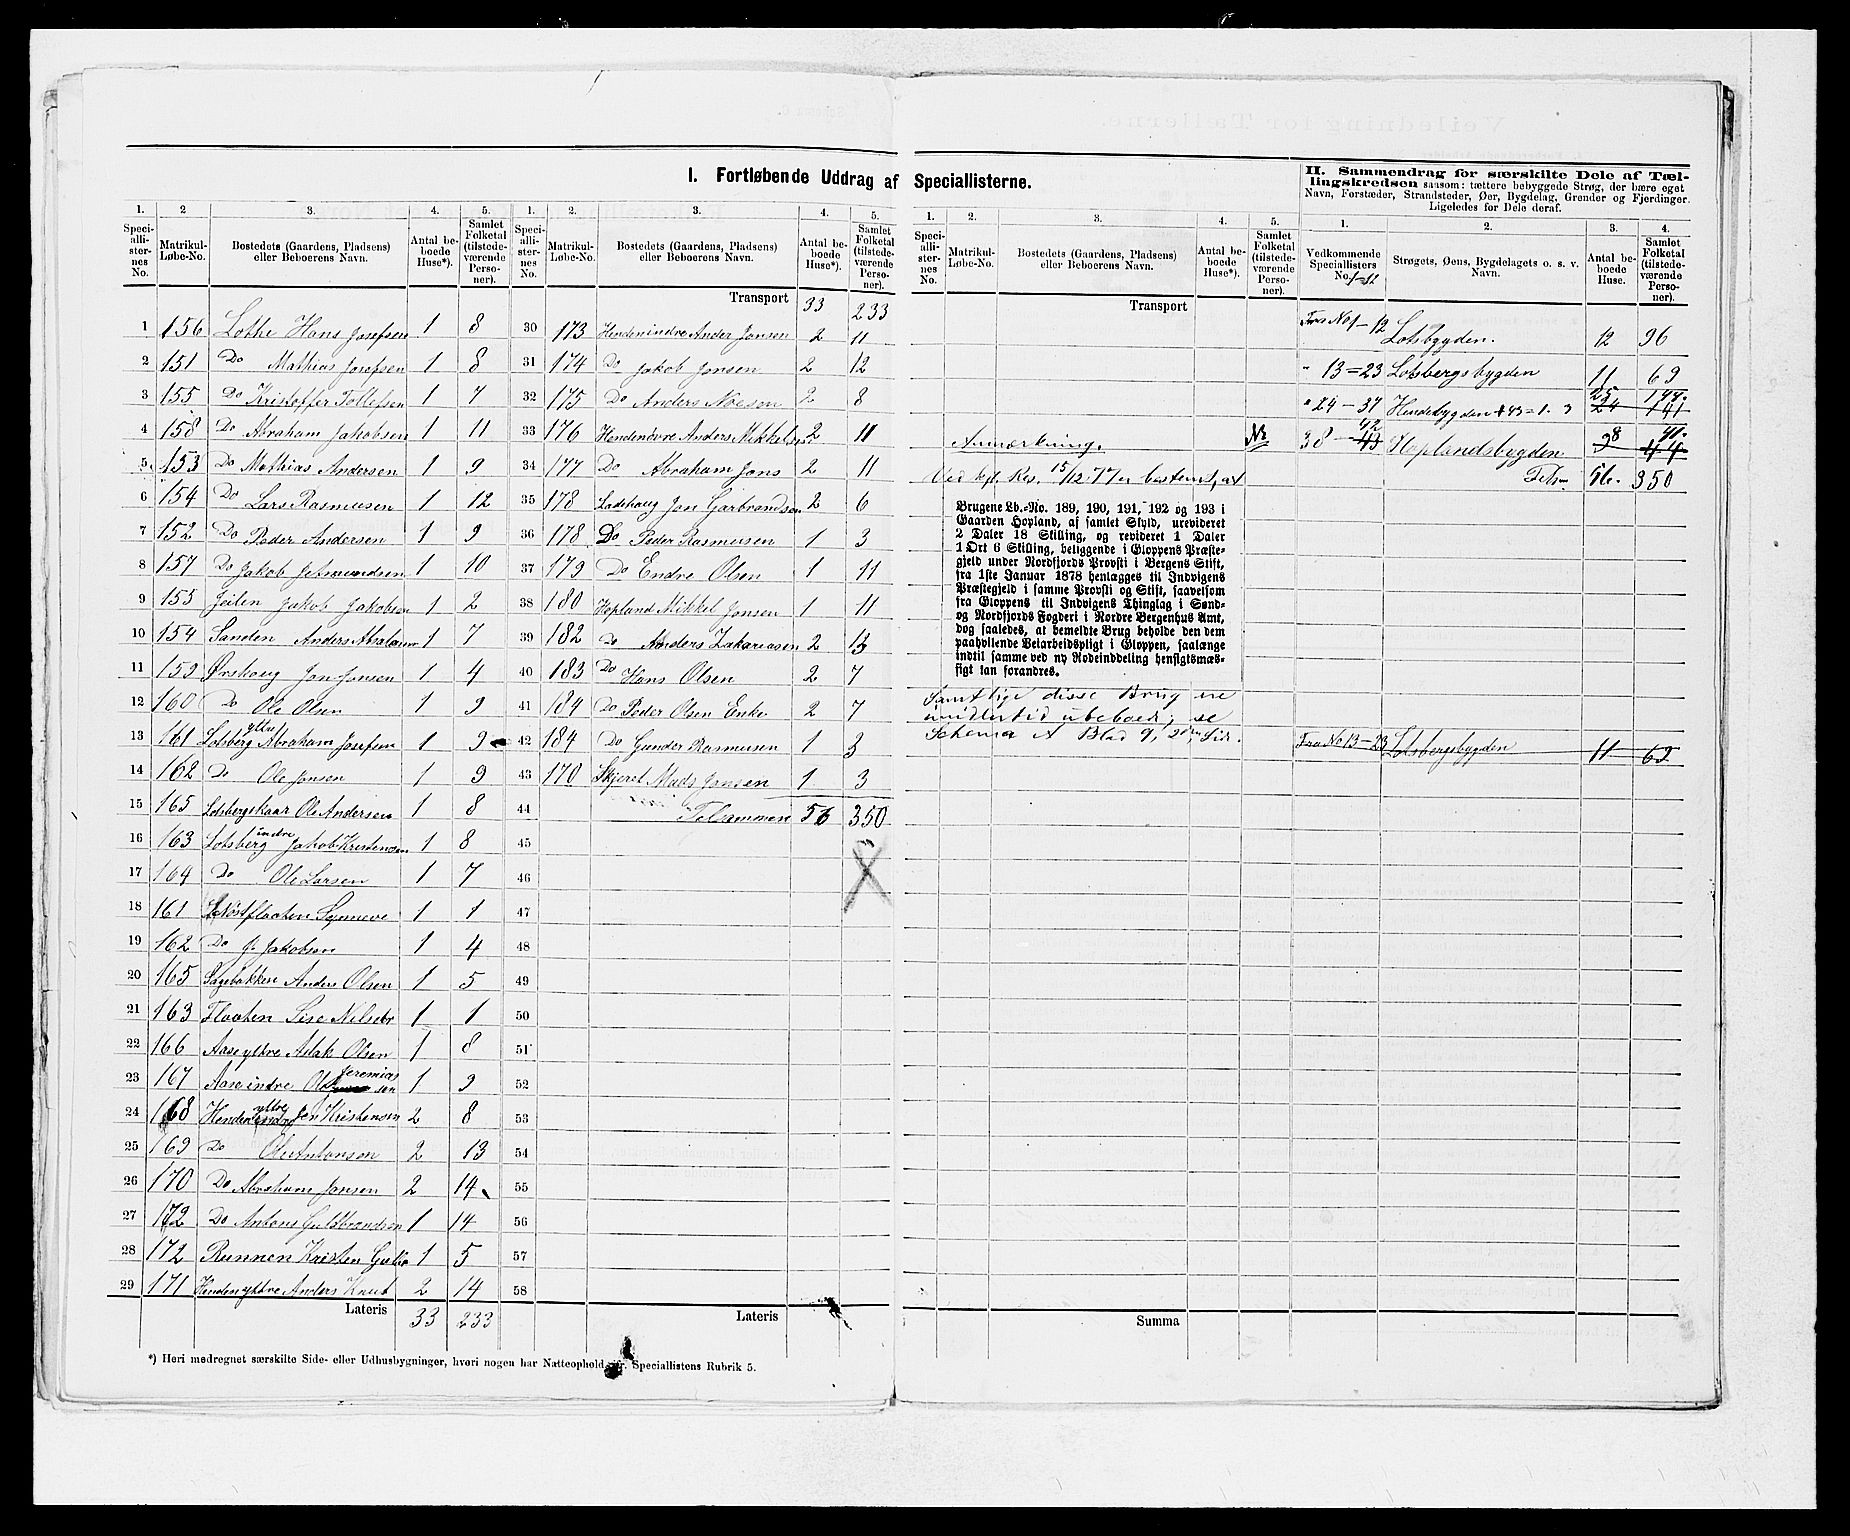 I. Fortløbende Uddrag af Speciallisterne.
II. Sammendrag for særskilte Dele af Tæl-
lingskredsen saasom: tættere bebyggede Strøg, der bære eget
Navn, Forstæder, Strandsteder, Øer, Bygdelag, Grender og Fjerdinger.
Ligeledes for Dele deraf.
1. 2 3. 4. 5.
Speciallisternes No. Matrikul-Løbe-No. Bostedets (Gaardens, Pladsens) eller Beboerens Navn. Antal beboede Huse*). Samlet Folketal (tilstedeværende Personer).
1 156 Lothe Hans Josefsen 1 8
2 151 Do Mathias Josefsen 1 8
3 155 Do Kristoffer Tollefsen 1 7
4 158 Do Abraham Jakobsen 1 11
5 153 Do Mathias Andersen 1 9
6 154 Do Lars Rasmusen 1 12
7 152 Do Peder Andersen 1 9
8 157 Do Jakob Jetmundsen 1 10
9 155 Jeilen Jakob Jakobsen 1 2
10 154 Sanden Anders 1 7
11 159 Ørskoug Jon Jonsen 1 4
12 160 Do Ole Olsen 1 9
13 161 Lotsberg ytre Abraham Josefsen 1 9
14 162 Do Ole Jonsen 1 9
15 165 Lotsbergskaar Ole Andersen 1 8
16 163 Lotsberg indre Jakob Kristensen 1 8
17 164 Do Ole Larsen 1 7
18 161 Synneve 1 1
19 162 Do J. Jakobsen 1 4
20 165 Sagebakken Anders Olsen 1 5
21 163 Flaaten Lise Nilsdtr 1 1
22 166 Aase yttre Aslak Olsen 1 8
23 167 Aase indre Ole Jeremias sen 1 9
24 168 Henden yttre Jon Kristensen 2 8
25 169 Do Ole Antonsen 2 13
26 170 Do Abraham Jonsen 2 14
27 172 Do Antons Guldbrandsen 1 14
28 172 Runnen Kristen 1 5
29 171 Henden yttre Anders Knut 2 14
Lateris 33 233
1. 2. 3. 4. 5.
Speciallisternes No. Matrikul-Løbe-No. Bostedets (Gaardens, Pladsens) eller Beboerens Navn. Antal beboede Huse*). Samlet Folketal (tilstedeværende Personer).
Transport 33 233
30 173 Henden indre Ander Jonsen 2 11
31 174 Do Jakob Jonsen 2 12
32 175 Do Anders Noesen 2 8
33 176 Henden øvre Anders Mikkelsen 2 11
34 177 Do Abraham Jons 2 11
35 178 Ladehoug Jon Garbrandsen 2 6
36 178 Do Peder Rasmusen 1 3
37 179 Do Endre Olsen 1 11
38 180 Hopland Mikkel Jonsen 1 11
39 182 Do Anders Zakariasen 2 13
40 183 Do Hans Olsen 2 7
41 184 Do Peder Olsen Enke 2 7
42 184 Do Gunder Rasmusen 1 3
43 170 Skjeret Mads Jonsen 1 3
44 Tilsammen 56 350
45
46
47
48
49
50
51
52
53
54
55
56
57
58
Lateris
*) Heri medregnet særskilte Side- eller Udhusbygninger, hvori nogen har Natteophold, jfr. Speciallistens Rubrik 5.
1. 2. 3. 4. 5.
Speciallisternes No. Matrikul-Løbe-No. Bostedets (Gaardens, Pladsens) eller Beboerens Navn. Antal beboede Huse*). Samlet Folketal (tilstedeværende Personer).
Transport
Anmærkning.
Ved kgl. Res. 15/12 77 er bestemt, at
Brugene Lb.-No. 189, 190, 191, 192 og 193 i
Gaarden Hopland, af samlet Skyld, urevideret
2 Daler 18 Skilling, og revideret 1 Daler
1 Ort 6 Skilling, beliggende i Gloppens Præste-
gjeld under Nordfjords Provsti i Bergens Stift,
fra 1ste Januar 1878 henlægges til Indvigens
Præstegjeld i samme Provsti og Stift, saavelsom
fra Gloppens til Indvigens Thinglag i Sønd-
og Nordfjords Fogderi i Nordre Bergenhus Amt,
dog saaledes, at bemeldte Brug beholde den dem
paahvilende Veiarbeidspligt i Gloppen, saalænge
indtil samme ved ny Rodeinddeling hensigtsmæs-
sigt kan forandres.
Samtlige disse Brug ere
imidlertid ubeboede, se
Schema A Blad 9, 2den Side.
Summa
1. 2. 3. 4.
Vedkommende Speciallisters No. 1-12 Strøgets, Øens, Bygdelagets o. s. v. Navn. Antal beboede Huse. Samlet Folketal (tilstedeværende Personer).
Fra No 1-12 Lotsbygden. 12 96
" 13=23 Lotsbergsbygden 11 69
" 24-37 Hendebygden + 43=1. 3 25 24 144. 141
No 38-43 42 Hoplandsbygden 9 8 41. 44
Tils. 56. 350
Fra No 13-23 Lotsbergsbygden 11 69